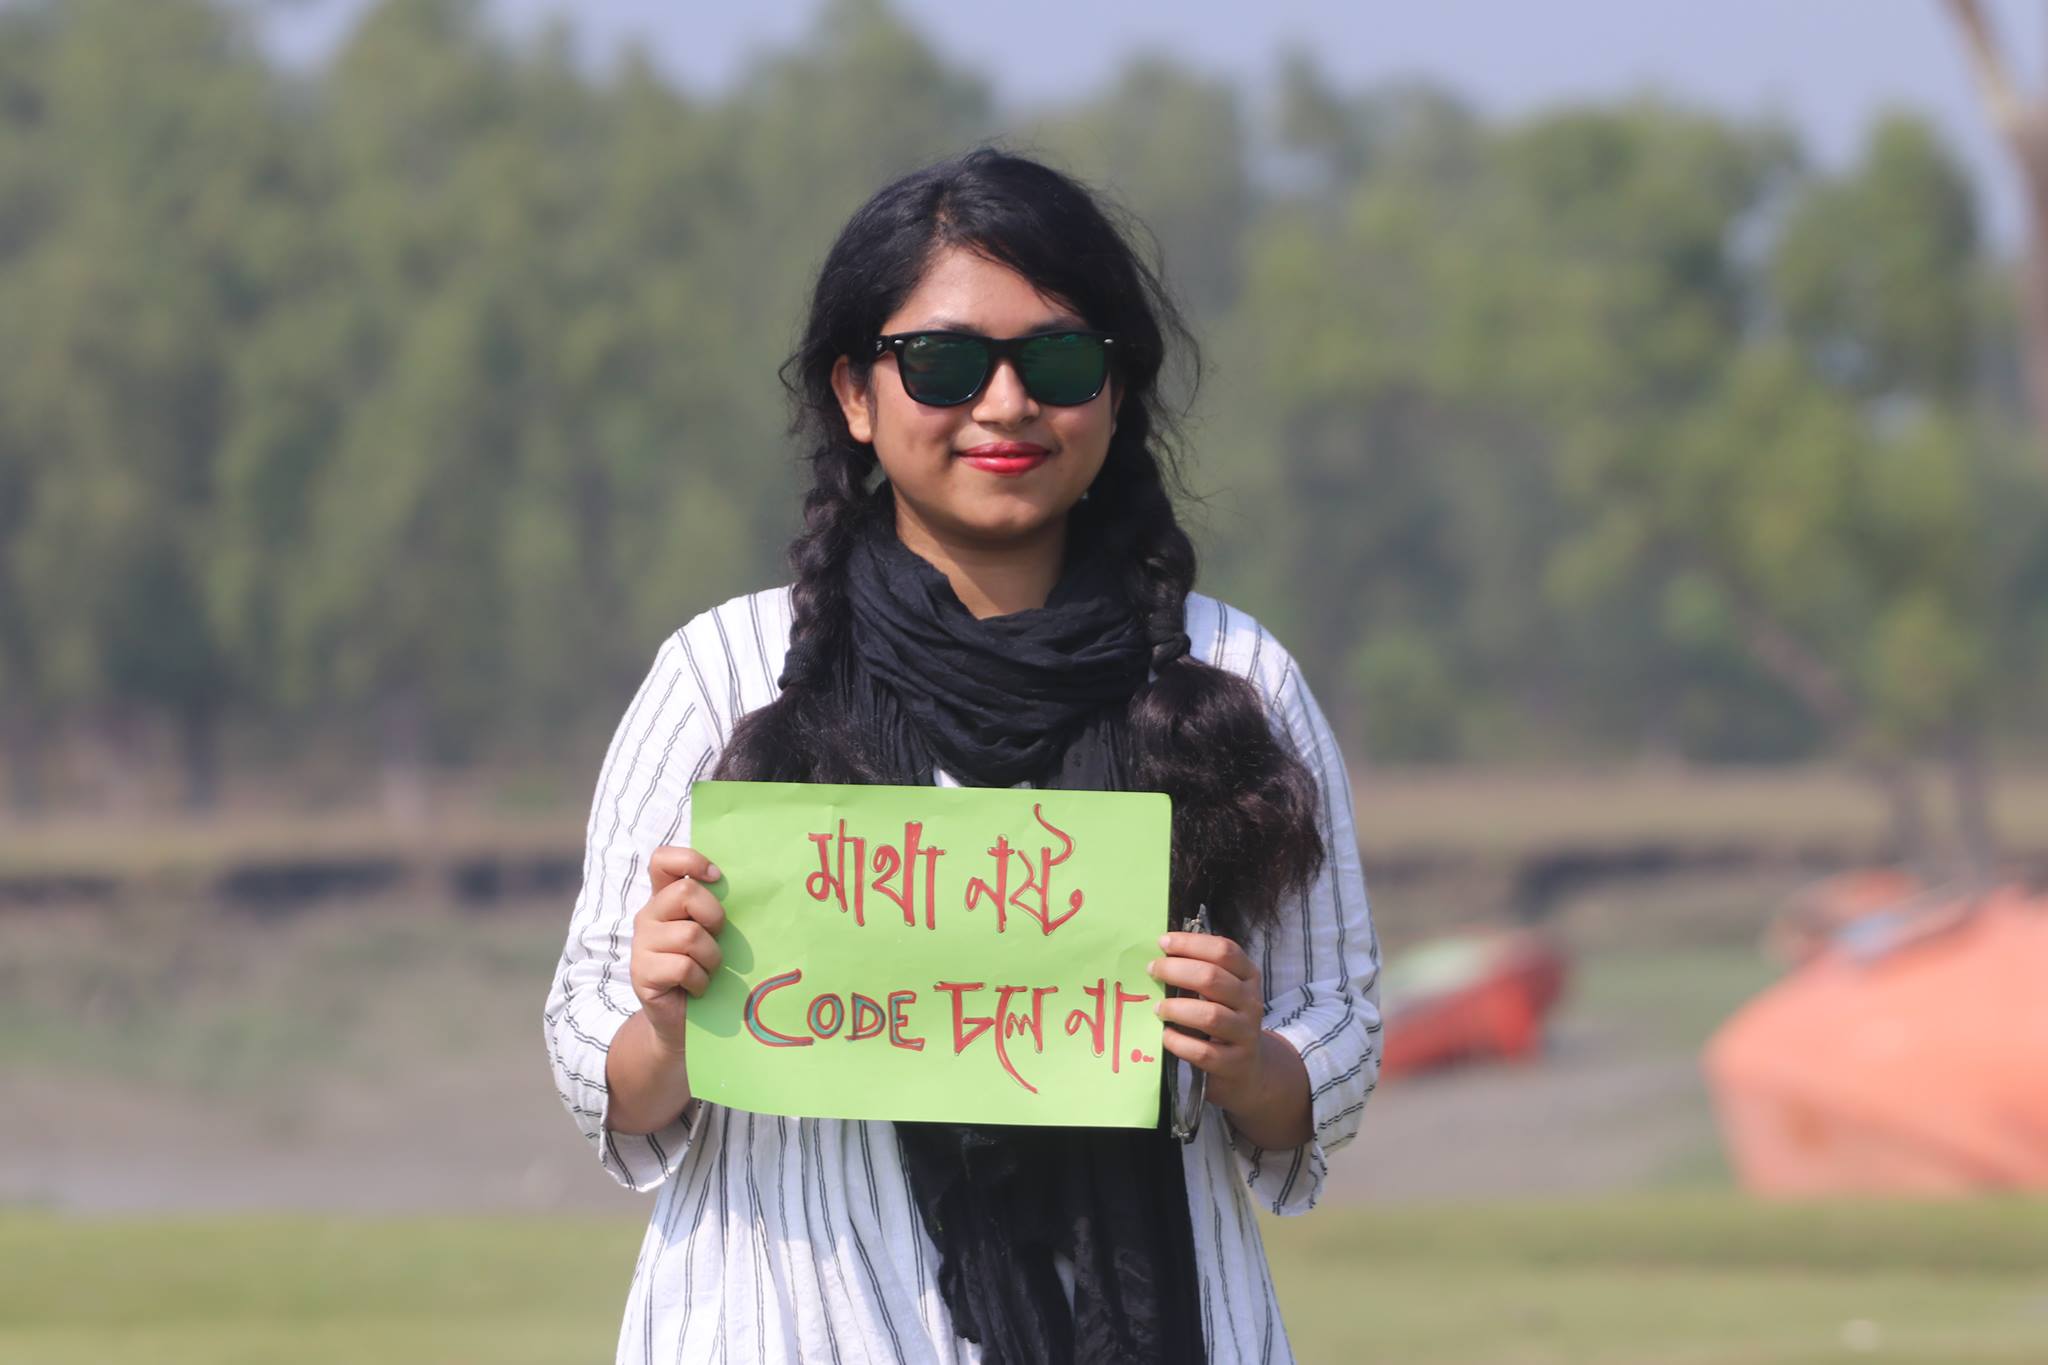 মাথা নষ্ট
CODE চলে না...